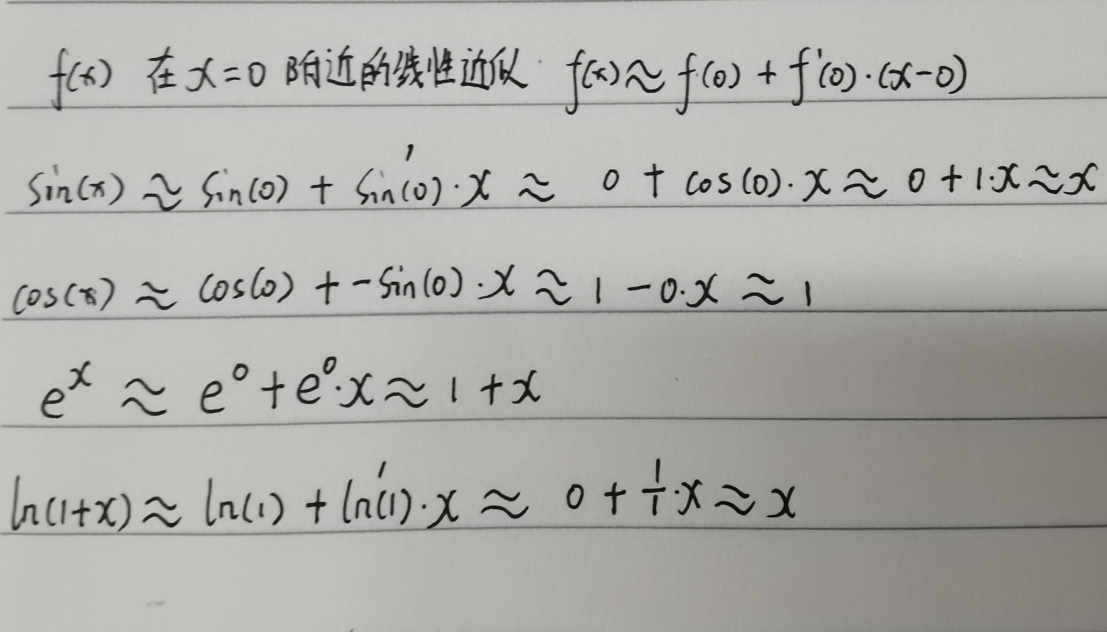 f(x) 在 x=0 附近的线性近似 f(x)≈f(0)+f'(0)·(x-0)
sin(x) ≈ sin(0) + sin'(0)·x ≈ 0 + cos(0)·x ≈ 0+1·x≈x
cos(x) ≈ cos(0) + -sin(0)·x ≈ 1 - 0·x ≈ 1
eˣ ≈ e⁰+e⁰·x≈1+x
ln(1+x) ≈ ln(1) + ln'(1)·x ≈ 0 + 1/1·x ≈ x